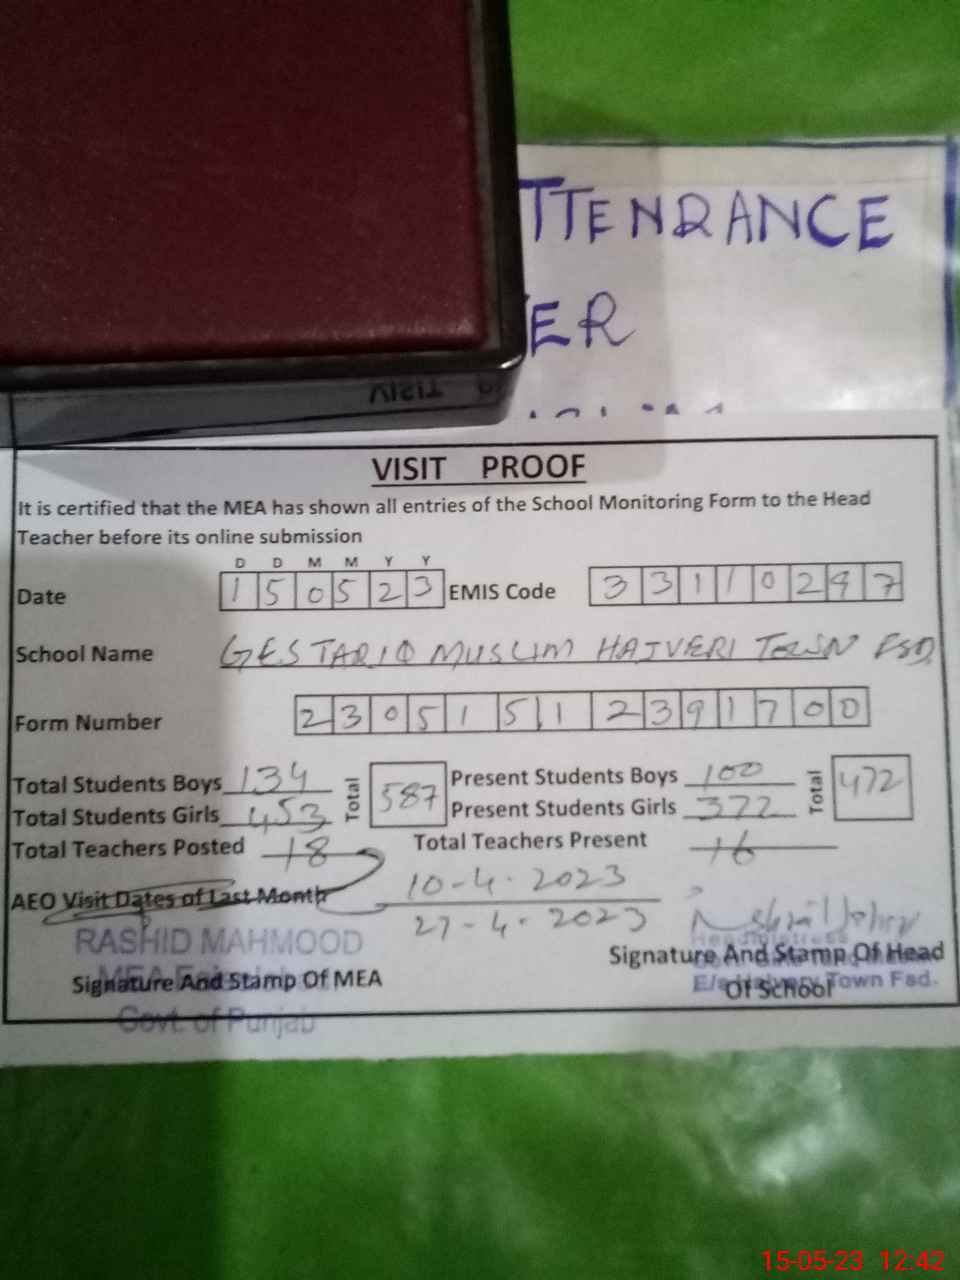 TTENDANCE
ER
VISIT
VISIT PROOF
It is certified that the MEA has shown all entries of the School Monitoring Form to the Head
Teacher before its online submission
D D M M Y Y
Date 1 5 0 5 2 3 EMIS Code 3 3 1 1 0 2 9 7
School Name GES TARIQ MUSLIM HAJVERI TOWN FSD.
Form Number 2 3 0 5 1 5 1 2 3 9 1 7 0 0
Total Students Boys 134 Total 587 Present Students Boys 100 Total 472
Total Students Girls 453 Present Students Girls 372
Total Teachers Posted 18 Total Teachers Present 16
AEO Visit Dates of Last Month 10-4-2023
27-4-2023
RASHID MAHMOOD
Signature And Stamp Of MEA
Govt. of Punjab
Signature And Stamp Of Head
Of School
Town Fsd.
15-05-23 12:42